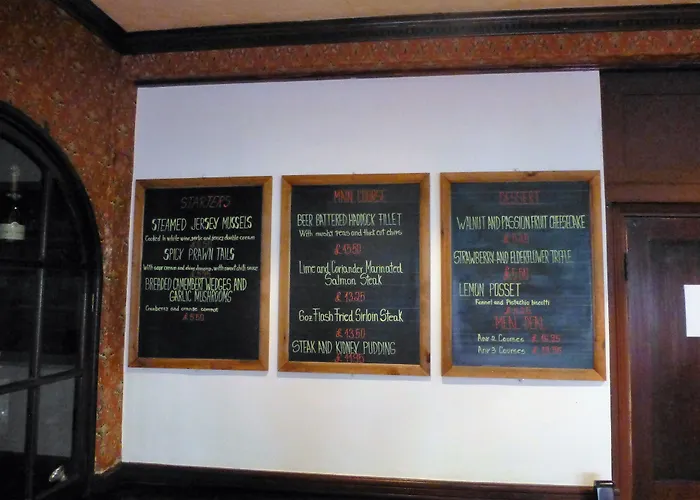 STARTERS
STEAMED JERSEY MUSSELS
Cooked in white wine, garlic and jersey double cream
SPICY PRAWN TAILS
With sour cream and chive dressing, with sweet chilli sauce
BREADED CAMEMBERT WEDGES AND
GARLIC MUSHROOMS
Cranberry and orange
MAIN COURSE
BEER BATTERED HADDOCK FILLET
With mushy peas and thick cut chips
£ 13.50
Lime and Coriander Marinated
Salmon Steak
£ 13.25
6oz Flash Fried Sirloin Steak
£ 13.50
STEAK AND KIDNEY PUDDING
DESSERT
WALNUT AND PASSION FRUIT CHEESECAKE
STRAWBERRY AND ELDERFLOWER TRIFLE
LEMON POSSET
Fennel and Pistachio biscotti
MEAL DEAL
Any 2 Courses
Any 3 Courses